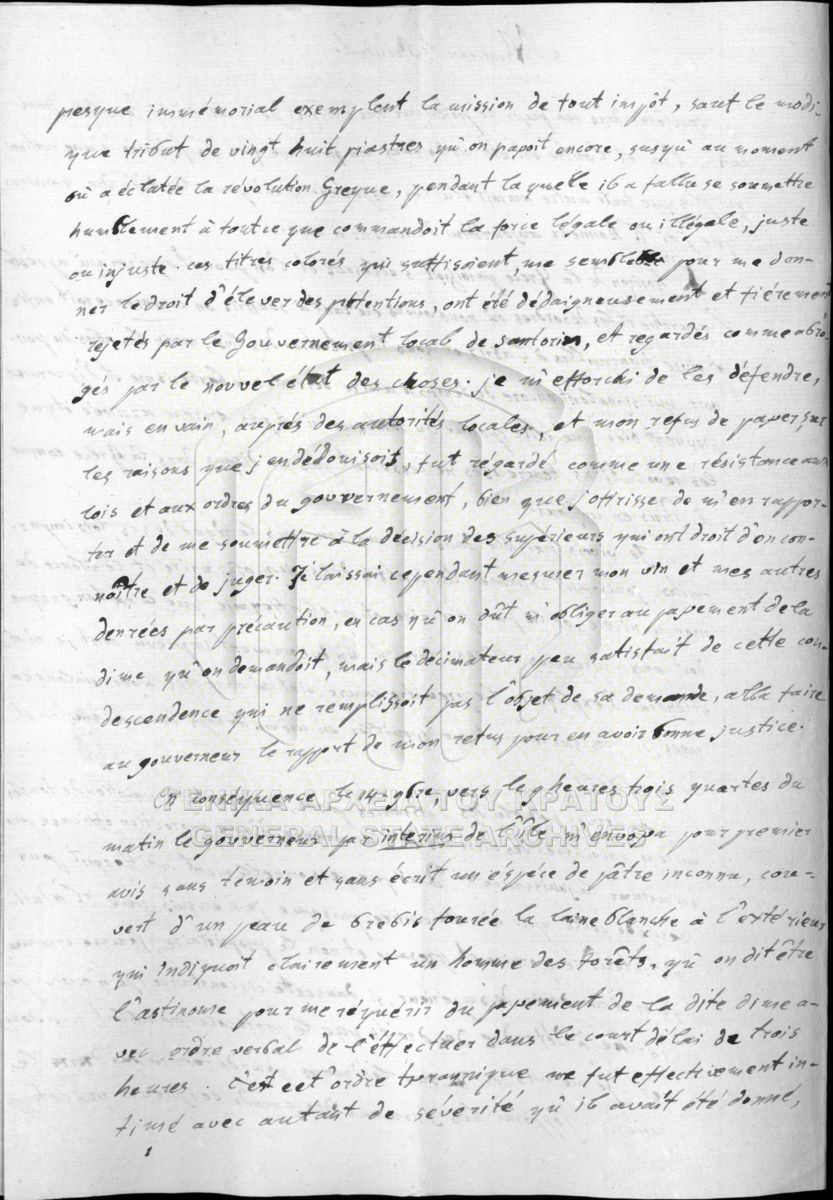 presque immémorial exemptent la mission de tout impôt, sauf le modi-
que tribut de vingt huit piastres qu'on payoit encore, jusqu'au moment
où a éclatée la révolution Greque, pendant laquelle il a fallu se soumettre
humblement à tout ce que commandoit la force légale ou illégale, juste
ou injuste. ces titres colorés qui suffisoient, me semble pour me don-
ner le droit d'élever des prétentions, ont été dédaigneusement et fiérement
rejetés par le Gouvernement local de santorin, et regardés comme abro-
gés par le nouvel état des choses. je m'efforchi de les défendre,
mais en vain, auprés des autorités locales, et mon refus de payer sur
les raisons que j'en déduisoit, fut régardé comme une résistance aux
lois et aux ordres du gouvernement, bien que j'offrisse de m'en rappor-
ter et de me soumettre à la décision des supérieurs qui ont droit d'en con-
noître et de juger. Je laissai cependant mesurer mon vin et mes autres
denrées par précaution, en cas qu'on dût m'obliger au payement de la
dime qu'on demandoit, mais le décimateur peu satisfait de cette con-
descendence qui ne remplissoit pas l'objet de sa demande, alla faire
au gouverneur le rapport de mon refus pour en avoir bonne justice.
En conséquence le 14 9bre, vers le 9 heures trois quartes du
ΓΕΝΙΚΑ ΑΡΧΕΙΑ ΤΟΥ ΚΡΑΤΟΥΣ
matin le gouverneur par intérim de l'île m'envoya pour premier
GENERAL STATE ARCHIVES
avis sans temoin et sans écrit un éspéce de pâtre inconnu, cou-
vert d'un peau de brebis fourée la laine blanche à l'extérieur
qui indiquoit clairement un homme des forêts, qu'on dit être
l'astinome pour me réquérir du payement de la dite dime a-
vec ordre verbal de l'éffectuer dans le court délai de trois
heures. C'est cet ordre tyrannique me fut effectivement in-
timé avec autant de sévérité qu'il avait été donné,